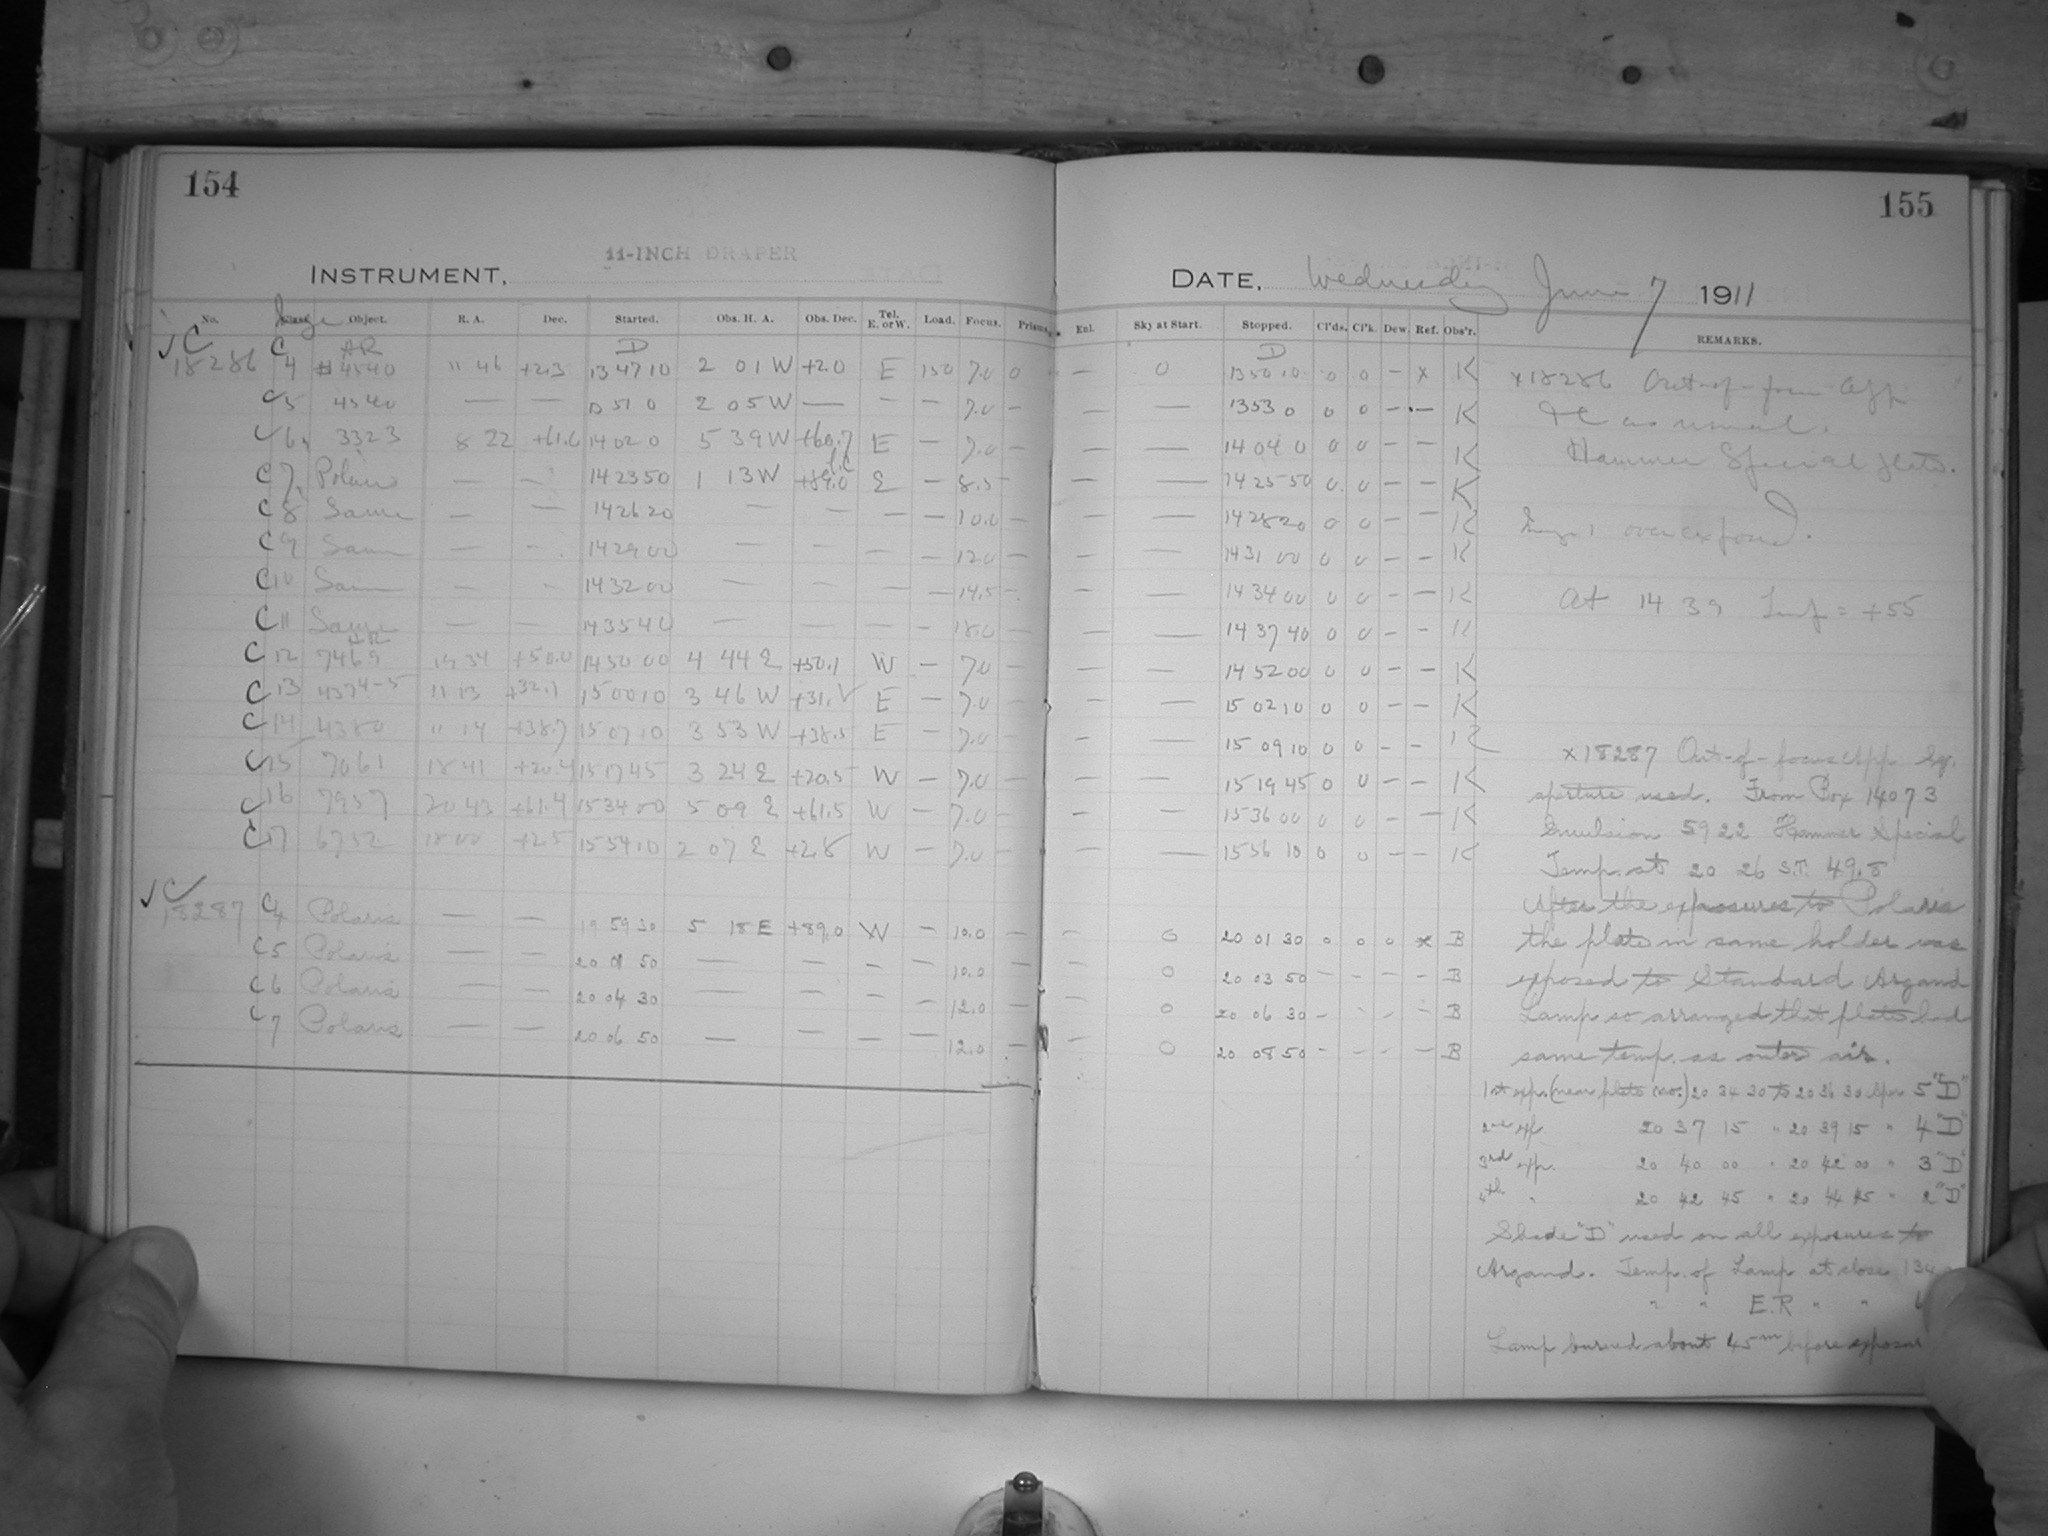 154
155
11-INCH DRAPER
INSTRUMENT,
DATE, Wednesday June 7 1911
No. Object. R. A. Dec. Started. Obs. H. A. Obs. Dec. Tel. E. or W. Load. Focus. Prisms. Enl. Sky at Start. Stopped. Cl'ds. Cl'k. Dew. Ref. Obs'r. REMARKS.
C 18286 4 4540 11 46 +2.3 13 47 10 2 01 W +2.0 E 150 7.0 0 — 0 13 50 10 0 0 — x K
C 5 4540 — — 13 51 0 2 05 W — — — 7.0 — — — 13 53 0 0 0 — — K
6 3323 8 22 +61.6 14 02 0 5 39 W +60.7 E — 7.0 — — — 14 04 0 0 0 — — K
C 7 Polaris — — 14 23 50 1 13 W +89.0 E — 8.5 — — — 14 25 50 0 0 — — K
C 8 Same — — 14 26 20 — — — — 10.0 — — — 14 28 20 0 0 — — K
C 9 Same — — 14 29 00 — — — — 12.0 — — — 14 31 00 0 0 — — K
C 10 Same — — 14 32 00 — — — — 14.5 — — — 14 34 00 0 0 — — K
C 11 Same — — 14 35 40 — — — — 18.0 — — — 14 37 40 0 0 — — K
C 12 7469 19 34 +50.0 14 50 00 4 44 E +50.1 W — 7.0 — — — 14 52 00 0 0 — — K
C 13 4374-5 11 13 +32.1 15 00 10 3 46 W E — 7.0 — — — 15 02 10 0 0 — — K
C 14 4380 11 14 +38.7 15 07 10 3 53 W +38.5 E — 7.0 — — — 15 09 10 0 0 — — K
C 15 7061 18 41 +20.4 15 17 45 3 24 E +20.5 W — 7.0 — — — 15 19 45 0 0 — — K
C 16 7957 20 43 +61.4 15 34 00 5 09 E +61.5 W — 7.0 — — — 15 36 00 0 0 — — K
C 17 6752 18 00 +2.5 15 54 10 2 07 E +2.8 W — 7.0 — — — 15 56 10 0 0 — — K
C 18287 C4 Polaris — — 19 59 30 5 18 E +89.0 W — 10.0 — — 0 20 01 30 0 0 0 x B
C 5 Polaris — — 20 01 50 — — — — 10.0 — — 0 20 03 50 — — — — B
C 6 Polaris — — 20 04 30 — — — — 12.0 — — 0 20 06 30 — — — — B
C 7 Polaris — — 20 06 50 — — — — 12.0 — — 0 20 08 50 — — — — B
x 18286 Out-of-focus App.
as usual.
Hammer Special plate.
overexposed.
At 14 39 Temp = +55
x 18287 Out-of-focus App. Sq.
aperture used. From Box 14073
Emulsion 5922 Hammer Special
Temp. at 20 26 S.T. 49.8
After the exposures to Polaris
the plate in same holder was
exposed to Standard Argand
Lamp so arranged that plate had
same temp. as outer air.
1st exp. (near plate no.) 20 34 30 to 20 36 30 5 "D"
2nd exp. 20 37 15 " 20 39 15 " 4 "D"
3rd exp. 20 40 00 " 20 42 00 " 3 "D"
4th " 20 42 45 " 20 44 45 " 2 "D"
Shade "D" used on all exposures to
Argand. Temp. of Lamp at close 134
" " E.R " "
Lamp burned about 45m before exposure